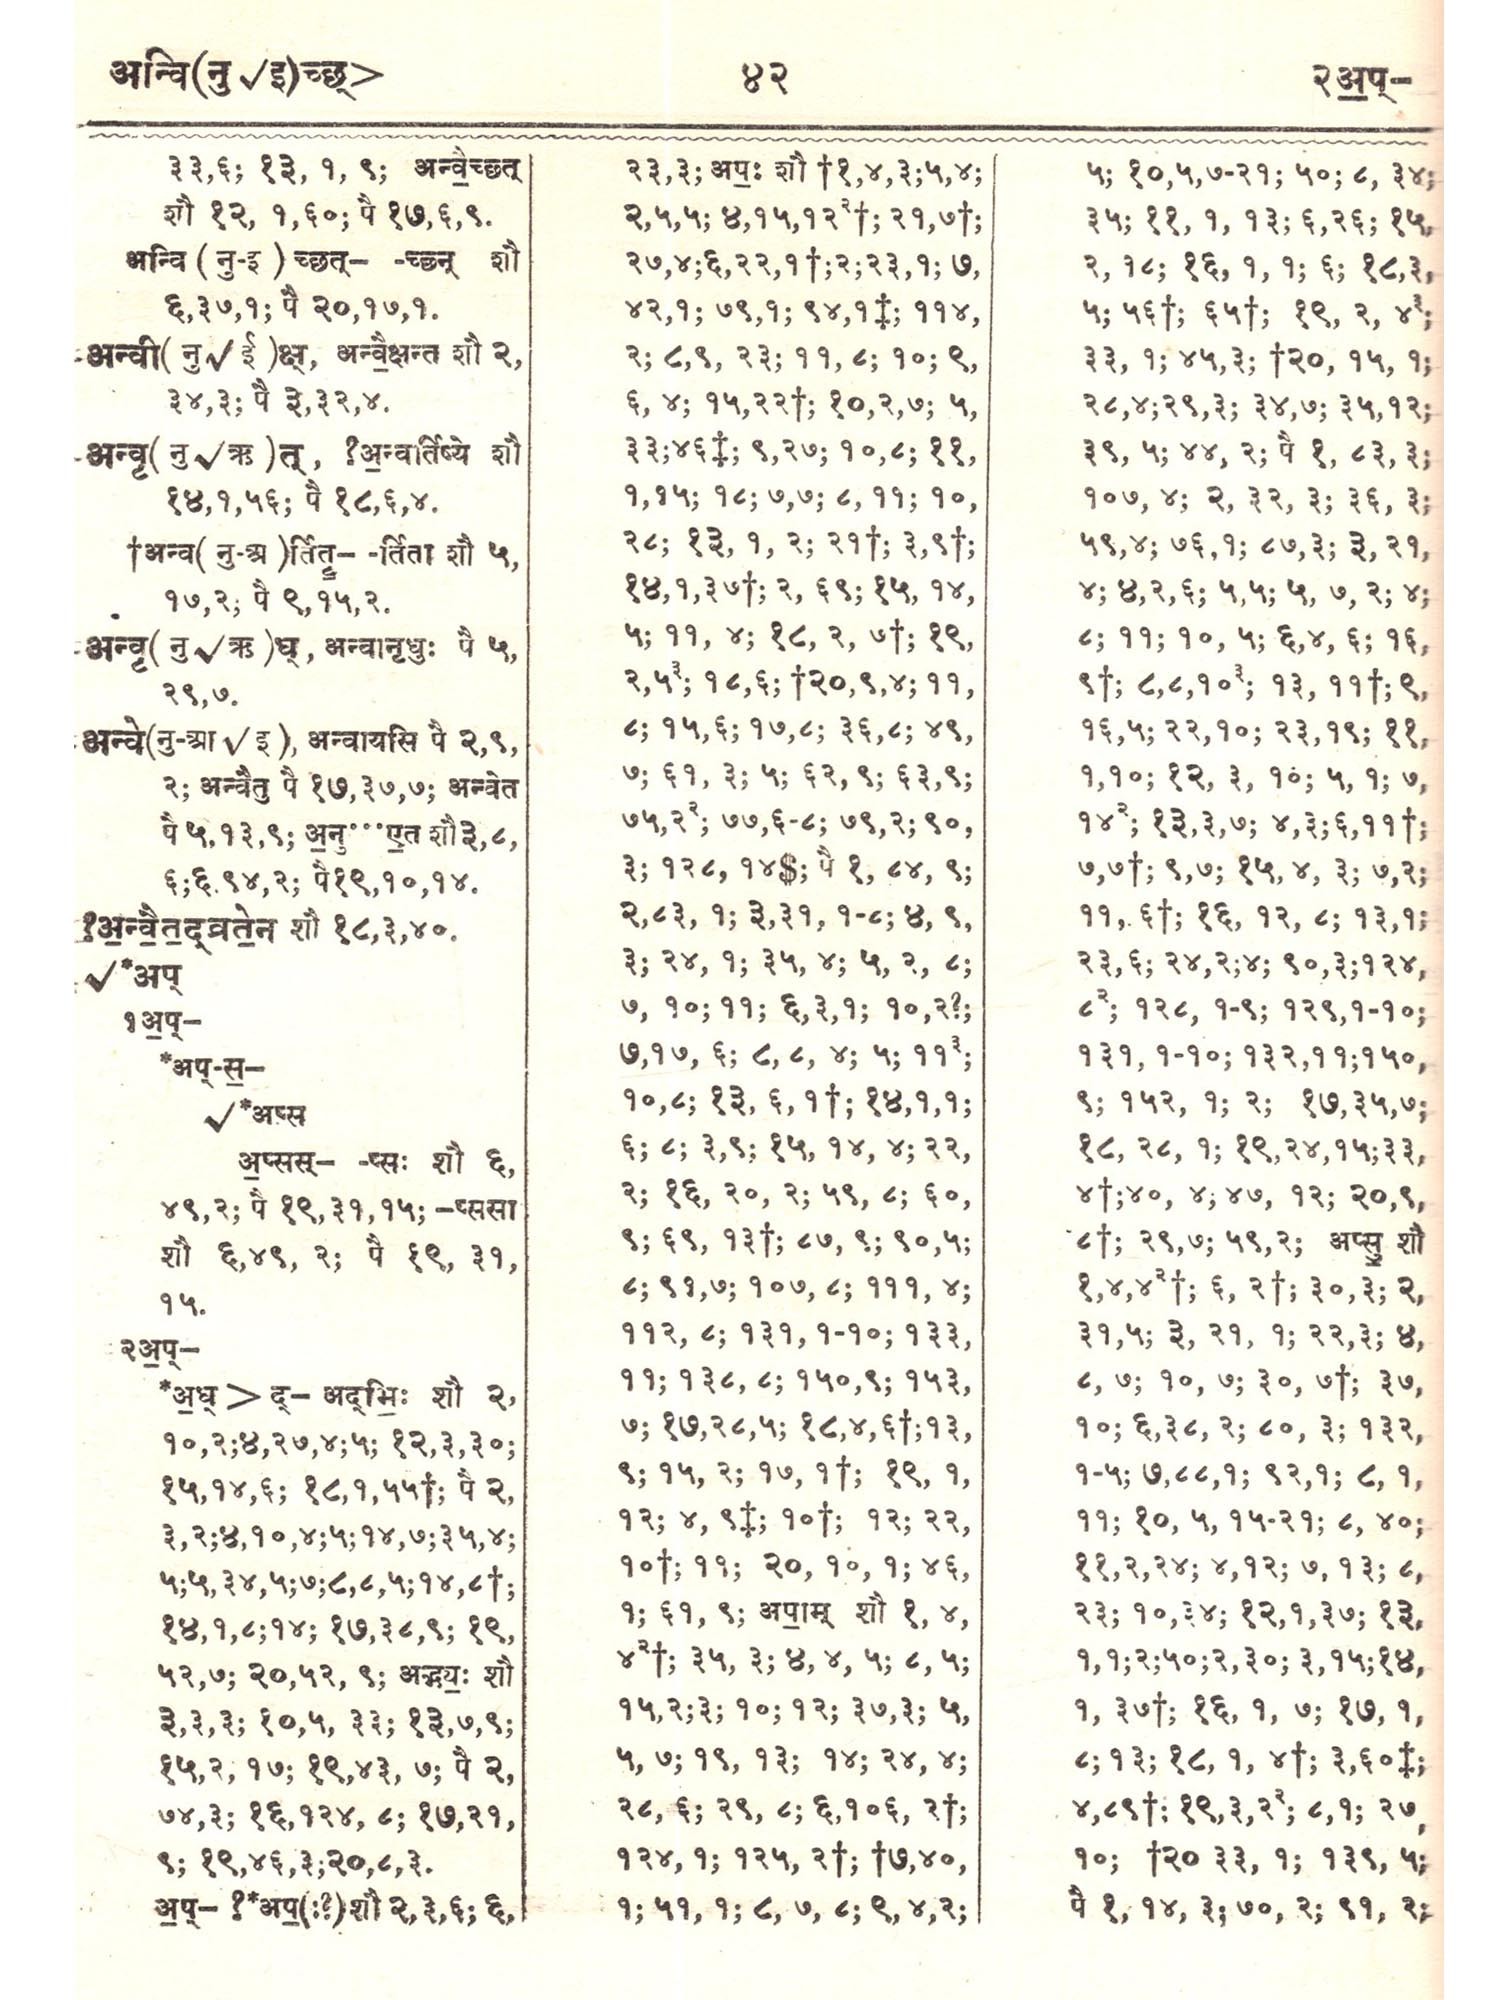 अन्वि(नु√इ)च्छ्>
४२
२अ॒प्-
३३,६; १३, १, ९; अन्वै॒च्छत्
शौ १२, १,६०; पै १७,६,९.
अन्वि ( नु-इ ) च्छत्- -च्छन् शौ
६,३७,१; पै २०,१७,१.
अन्वी( नु√ई )क्ष्, अन्वै॒क्षन्त शौ २,
३४,३; पै ३,३२,४.
अन्वृ( नु√ऋ )त्, ?अ॒न्वर्तिष्ये शौ
१४,१,५६; पै १८,६,४.
†अन्व( नु-अ )र्तितृ॒- -र्तिता शौ ५,
१७,२; पै ९,१५,२.
अन्वृ( नु√ऋ )ध्, अन्वानृधुः पै ५,
२९,७.
अन्वे(नु-आ√इ), अन्वायसि पै २,९,
२; अन्वैतु पै १७,३७,७; अन्वेत
पै ५,१३,९; अ॒नु···ए॒त शौ ३,८,
६;६.९४,२; पै१९,१०,१४.
?अ॒न्वै॒त॒द्व्रते॒न शौ १८,३,४०.
√*अप्
१अ॒प्-
*अप्-स॒-
√*अप्स
अ॒प्सस्- -प्सः शौ ६,
४९,२; पै १९,३१,१५; -प्ससा
शौ ६,४९, २; पै १९, ३१,
१५.
२अ॒प्-
*अ॒ध् > द्- अद्भिः॒ शौ २,
१०,२;४,२७,४;५; १२,३,३०;
१५,१४,६; १८,१,५५†; पै २,
३,२;४,१०,४;५;१४,७;३५,४;
५;५,३४,५;७;८,८,५;१४,८†;
१४,१,८;१४; १७,३८,९; १९,
५२,७; २०,५२, ९; अद्भ्यः॒ शौ
३,३,३; १०,५, ३३; १३,७,९;
१५,२, १७; १९,४३, ७; पै २,
७४,३; १६,१२४, ८; १७,२१,
९; १९,४६,३;२०,८,३.
अ॒प्- ?*अप॒(:?) शौ २,३,६; ६,
२३,३; अपः॒ शौ †१,४,३;५,४;
२,५,५; ४,१५,१२²†; २१,७†;
२७,४;६,२२,१†;२;२३,१; ७,
४२,१; ७९,१; ९४,१‡; ११४,
२; ८,९, २३; ११, ८; १०; ९,
६, ४; १५,२२†; १०,२,७; ५,
३३;४६‡; ९,२७; १०,८; ११,
१,१५; १८; ७,७; ८, ११; १०,
२८; १३, १, २; २१†; ३,९†;
१४,१,३७†; २, ६९; १५, १४,
५; ११, ४; १८, २, ७†; १९,
२,५³; १८,६; †२०,९,४; ११,
८; १५,६; १७,८; ३६,८; ४९,
७; ६१, ३; ५; ६२, ९; ६३,९;
७५,२²; ७७,६-८; ७९,२; ९०,
३; १२८, १४$; पै १, ८४, ९;
२,८३, १; ३,३१, १-८; ४, ९,
३; २४, १; ३५, ४; ५, २, ८;
७, १०; ११; ६,३,१; १०,२?;
७,१७, ६; ८,८, ४; ५; ११³;
१०,८; १३, ६, १†; १४,१,१;
६; ८; ३,९; १५, १४, ४; २२,
२; १६, २०, २; ५९, ८; ६०,
९; ६९, १३†; ८७, ९; ९०,५;
८; ९१,७; १०७, ८; १११, ४;
११२, ८; १३१, १-१०; १३३,
११; १३८, ८; १५०,९; १५३,
७; १७,२८,५; १८,४,६†;१३,
९; १५, २; १७, १†; १९, १,
१२; ४, ९‡; १०†; १२; २२,
१०†; ११; २०, १०, १; ४६,
१; ६१, ९; अपा॒म् शौ १, ४,
४²†; ३५, ३; ४, ४, ५; ८, ५;
१५,२;३; १०; १२; ३७,३; ५,
५, ७; १९, १३; १४; २४, ४;
२८, ६; २९, ८; ६,१०६, २†;
१२४, १; १२५, २†; †७,४०,
१; ५१, १; ८, ७, ८; ९, ४,२;
५; १०,५,७-२१; ५०; ८, ३४;
३५; ११, १, १३; ६,२६; १५,
२, १८; १६, १, १; ६; १८,३,
५; ५६†; ६५†; १९, २, ४³;
३३, १; ४५,३; †२०, १५, १;
२८,४;२९,३; ३४,७; ३५,१२;
३९, ५; ४४, २; पै १, ८३, ३;
१०७, ४; २, ३२, ३; ३६, ३;
५९,४; ७६,१; ८७,३; ३, २१,
४; ४,२,६; ५,५; ५, ७, २; ४;
८; ११; १०, ५; ६,४, ६; १६,
९†; ८,८,१०³; १३, ११†; ९,
१६,५; २२,१०; २३,१९; ११,
१,१०; १२, ३, १०; ५, १; ७,
१४²; १३,३,७; ४,३;६,११†;
७,७†; ९,७; १५, ४, ३; ७,२;
११, ६†; १६, १२, ८; १३,१;
२३,६; २४,२;४; ९०,३;१२४,
८²; १२८, १-९; १२९,१-१०;
१३१, १-१०; १३२,११;१५०,
९; १५२, १; २; १७,३५,७;
१८, २८, १; १९,२४,१५;३३,
४†;४०, ४; ४७, १२; २०,९,
८†; २९,७; ५९,२; अप्सु॒ शौ
१,४,४²†; ६, २†; ३०,३; २,
३१,५; ३, २१, १; २२,३; ४,
८, ७; १०, ७; ३०, ७†; ३७,
१०; ६,३८, २; ८०, ३; १३२,
१-५; ७,८८,१; ९२,१; ८, १,
११; १०, ५, १५-२१; ८, ४०;
११,२,२४; ४,१२; ७, १३; ८,
२३; १०,३४; १२,१,३७; १३,
१,१;२;५०;२,३०; ३,१५;१४,
१, ३७†; १६, १, ७; १७, १,
८; १३; १८, १, ४†; ३,६०‡;
४,८९†; १९,३,२²; ८,१; २७,
१०; †२० ३३, १; १३९, ५;
पै १, १४, ३; ७०, २; ९१, २;